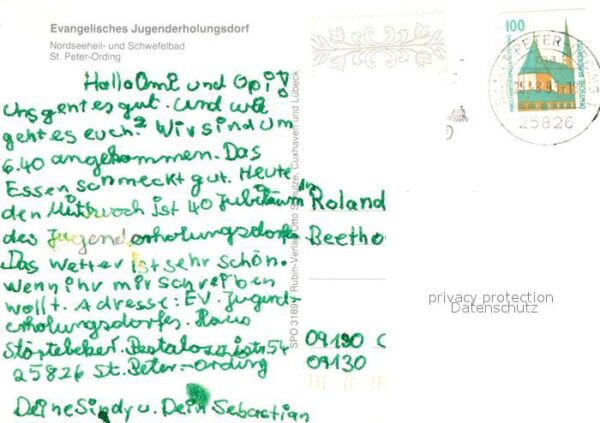 Evangelisches Jugenderholungsdorf
Nordseeheil- und Schwefelbad
St. Peter-Ording
Hallo Omi und Opi!
Uns gent es gut. und wie
geht es euch? Wir sind um
6.40 angekommen. Das
Essen schmeckt gut. Heute
den Mittwoch ist 40 Jubiläum
des Jugenderholungsdorfes
Das Wetter ist sehr schön.
Wenn ihr mir schreiben
wollt. Adresse: EV. Jugend-
erholungsdorfes. Haus
Störtebeker. Pestalozzistr. 54
25826 St. Peter-Ording
Deine Sindy u. Dein Sebastian
SPO 3189 Rubin-Verlag Otto Schulze, Cuxhaven und Lübeck
100
DEUTSCHE BUNDESPOST
PETER
25826
Roland
Beetho
09130
09130
privacy protection
Datenschutz